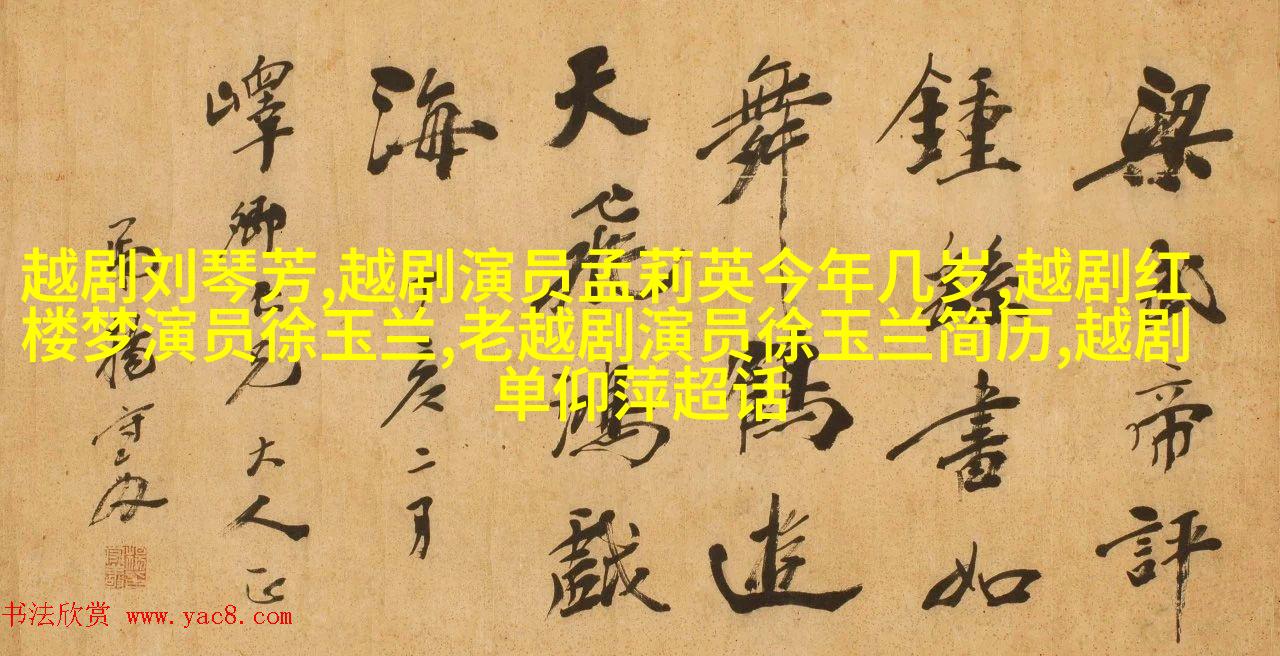 越剧刘琴芳,越剧演员孟莉英今年几岁,越剧红
楼梦演员徐玉兰,老越剧演员徐玉兰简历,越剧
单仰萍超话
梁武帝評
鍾繇書如
舞鶴遊
天飛鴻戲
海
亥二月
嶧卿仁兄大人正
楊守敬
书法欣赏 www.yac8.com